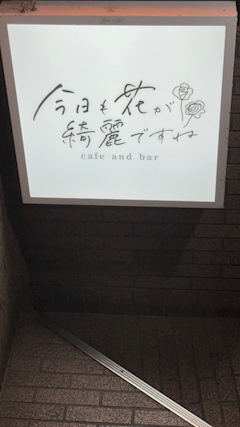 今日も花が
綺麗ですね
cafe and bar